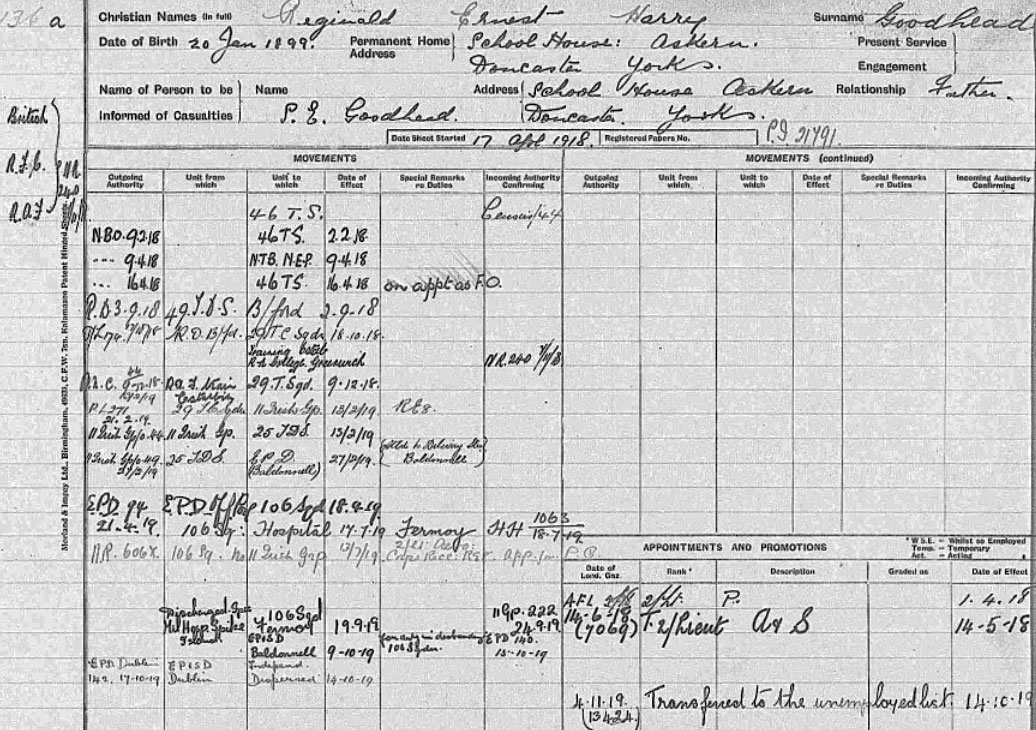 136 a
Christian Names (in full) Reginald Ernest Harry Surname Goodhead
Date of Birth 20 Jan 1899. Permanent Home Address School House: Askern. Present Service
Doncaster Yorks. Engagement
Name of Person to be Informed of Casualties Name P. E. Goodhead. Address School House Askern Relationship Father.
Doncaster. Yorks.
Date Sheet Started 17 Apl 1918. Registered Papers No. P.I 21791
British
R.F.C.
R.A.F
MOVEMENTS MOVEMENTS (continued)
Outgoing Authority Unit from which Unit to which Date of Effect Special Remarks re Duties Incoming Authority Confirming Outgoing Authority Unit from which Unit to which Date of Effect Special Remarks re Duties Incoming Authority Confirming
46 T.S. Census/44
NBO. 9.2.18 46 T.S. 2.2.18.
--- 9.4.18 N.T.B. N.E.P. 9.4.18
--- 16.4.18 46 T.S. 16.4.18 on appt as F.O.
R.D 3.9.18 49 T.D.S. B/ford 2-9-18
R.D. B/fd. 29 T.C Sqdn 18.10.18.
Training Estab
R.A. College Greenwich N.R. 240
29. T. Sqd. 9.12.18.
PL 271 11 Irish Gp. 13/2/19 R.E8.
21.2.19.
11 Irish Gp/o.44 11 Irish Gp. 25 T.D.S. 13/2/19
11 Irish Gp/o.49 25 T.D.S. E.P.D. 27/2/19
27/2/19 (Baldonnell) Baldonnell
E.P.D. 94 E.P.D 106 Sqd 18.4.19
21.4.19. 106 Sq: Hospital 17.7.19 Fermoy HH 1063
18-7-19
N.R. 606X. 106 Sq. 11 Irish Grp 13/7/19
Discharged 106 Sqd 11 Gp. 222
Mil Hosp. Fermoy 19.9.19 24.9.19
EPisD for duty in disbanding EPD 140.
Baldonnell 9-10-19 106 Sqdn. 15-10-19
E.P.D. Dublin EPisD
142, 17-10-19 Dublin Dispersed 14-10-19
APPOINTMENTS AND PROMOTIONS
* W.S.E. = Whilst so Employed
Temp. = Temporary
Act. = Acting
Date of Lond. Gaz. Rank * Description Graded as Date of Effect
A.F.L. 2/Lt. P. 1.4.18
14-6-18 T. 2/Lieut A & S 14-5-18
(7069)
4.11.19. Transferred to the unemployed list. 14.10.19
(13424)
Morland & Impey Ltd., Birmingham, C.F.W. Kalamazoo Patent